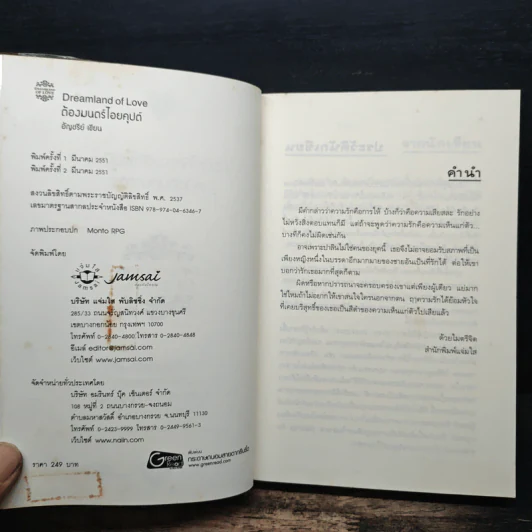 Dreamland of Love
ต้องมนตร์ไอยคุปต์
อัญชรีย์ เขียน
พิมพ์ครั้งที่ 1 มีนาคม 2551
พิมพ์ครั้งที่ 2 มีนาคม 2551
สงวนลิขสิทธิ์ตามพระราชบัญญัติลิขสิทธิ์ พ.ศ. 2537
เลขมาตรฐานสากลประจำหนังสือ ISBN 978-974-04-6346-7
ภาพประกอบปก Monto RPG
จัดพิมพ์โดย
Jamsai
บริษัท แจ่มใส พับลิชชิ่ง จำกัด
285/33 ถนนจรัญสนิทวงศ์ แขวงบางขุนศรี
เขตบางกอกน้อย กรุงเทพฯ 10700
โทรศัพท์ 0-2840-4800 โทรสาร 0-2840-4848
อีเมล์ editor@jamsai.com
เว็บไซต์ www.jamsai.com
จัดจำหน่ายทั่วประเทศโดย
บริษัท อมรินทร์ บุ๊ค เซ็นเตอร์ จำกัด
108 หมู่ที่ 2 ถนนบางกรวย-จงถนอม
ตำบลมหาสวัสดิ์ อำเภอบางกรวย จ.นนทบุรี 11130
โทรศัพท์ 0-2423-9999 โทรสาร 0-2449-9561-3
เว็บไซต์ www.naiin.com
ราคา 249 บาท
Green
www.greenread.com
คำนำ
มีคำกล่าวว่าความรักคือการให้ บ้างก็ว่าคือความเสียสละ รักอย่าง
ไม่หวังสิ่งตอบแทนก็มี แต่ถ้าจะพูดว่าความรักคือความเห็นแก่ตัว...
บางทีก็คงไม่ผิดเช่นกัน
อาจเพราะปาลินไม่ใช่คนของยุคนี้ เธอจึงไม่อาจยอมรับสภาพที่เป็น
เพียงผู้หญิงหนึ่งในบรรดาอีกมากมายของชายอันเป็นที่รักได้ ต่อให้เขา
บอกว่ารักเธอมากที่สุดก็ตาม
ผิดหรือหากปรารถนาจะครอบครองเขาแต่เพียงผู้เดียว แย่มาก
ใช่ไหมถ้าไม่อยากให้เขาสนใจใครนอกจากตน ฤๅความรักได้ย้อมหัวใจ
ที่เคยบริสุทธิ์ของเธอเป็นสีดำของความเห็นแก่ตัวไปเสียแล้ว
ด้วยไมตรีจิต
สำนักพิมพ์แจ่มใส